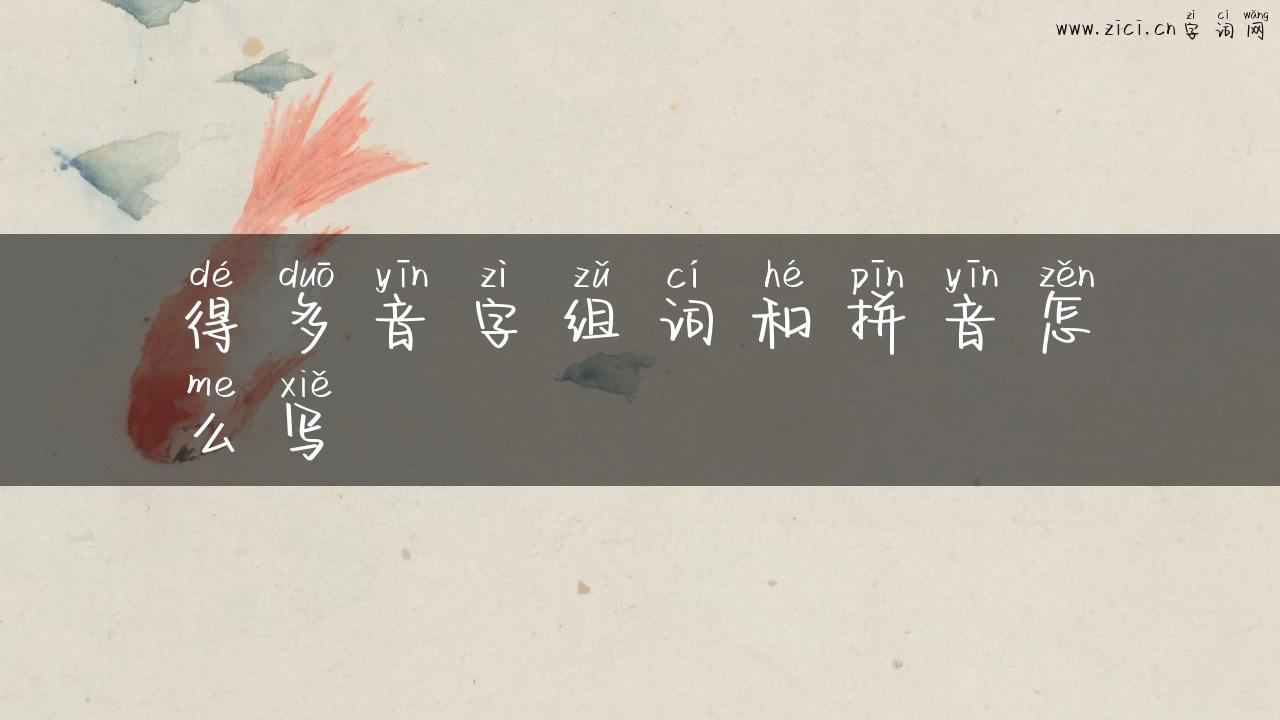 zì cí wǎng
www.zici.cn 字词网
dé duō yīn zì zǔ cí hé pīn yīn zěn
得多音字组词和拼音怎
me xiě
么写